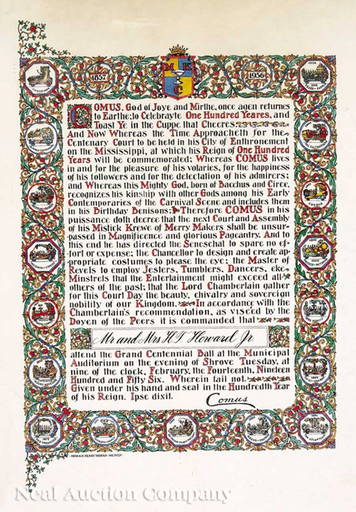 M K
C
1857
1956
COMUS, God of Joye and Mirthe, once agen returnes
to Earthe; to Celebrayte One Hundred Yeares, and
Toast Ye in the Cuppe that Cheeres
And Now Whereas the Time Approacheth for the
Centenary Court to be held in his City of Enthronement
on the Mississippi, at which his Reign of One Hundred
Years will be commemorated; Whereas COMUS lives
in and for the pleasure of his votaries, for the happiness
of his followers and for the delectation of his admirers;
and Whereas this Mighty God, born of Bacchus and Circe,
recognizes his kinship with other Gods among his Early
Contemporaries of the Carnival Scene and includes them
in his Birthday Benisons; Therefore COMUS in his
puissance doth decree that the next Court and Assembly
of his Mistick Krewe of Merry Makers shall be unsur-
passed in Magnificence and glorious Pageantry. And to
this end he has directed the Seneschal to spare no ef-
fort or expense; the Chancellor to design and create ap-
propriate costumes to please the eye; the Master of
Revels to employ Jesters, Tumblers, Dancers, eke
Minstrels that the Entertainment might exceed all
others of the past; that the Lord Chamberlain gather
for this Court Day the beauty, chivalry and sovereign
nobility of our Kingdom. In accordance with the
Chamberlain's recommendation, as viseed by the
Doyen of the Peers it is commanded that
Mr and Mrs H T Howard Jr
attend the Grand Centennial Ball at the Municipal
Auditorium on the evening of Shrove Tuesday, at
nine of the clock, February, the Fourteenth, Nineteen
Hundred and Fifty Six. Wherein fail not
Given under his hand and seal in the Hundredth Year
of his Reign. Ipse dixit.
Comus
Neal Auction Company